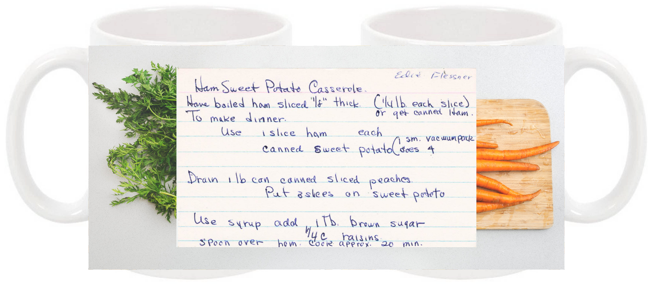 Edid Flessner
Ham Sweet Potato Casserole.
Have boiled ham sliced "1/8" thick. (1/4 lb each slice)
To make dinner. or get canned Ham.
Use 1 slice ham each
canned sweet potato (sm. vacuum pack
does 4
Drain 1 lb can canned sliced peaches
Put 3 slices on sweet potato
Use syrup add 1 Tb. brown sugar
1/4 c raisins.
spoon over ham. Cook approx. 20 min.